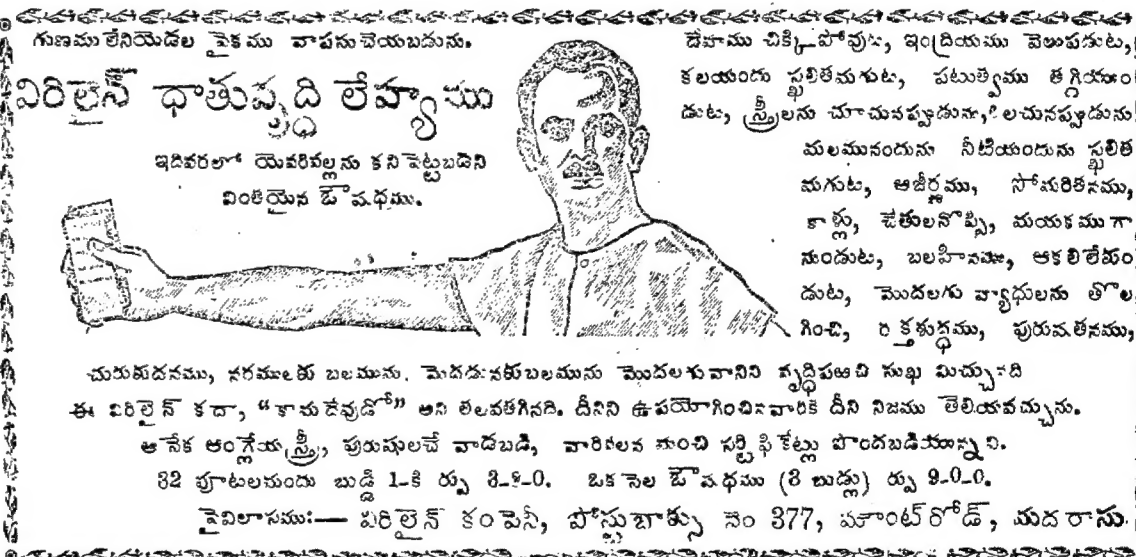 గుణము లేనియెడల పైకము వాపసుచేయబడును.
విరిలైన్ ధాతువృద్ధి లేహ్యము
ఇదివరలో యెవరివల్లను కనిపెట్టబడని
వింతయైన ఔషధము.
దేహము చిక్కిపోవుట, ఇంద్రియము వెలుపడుట,
కలయందు స్ఖలితమగుట, పటుత్వము తగ్గియుం
డుట, స్త్రీలను చూచునప్పుడును, పిలచునప్పుడును
మలమునందును నీటియందును స్ఖలిత
మగుట, అజీర్ణము, సోమరితనము,
కాళ్లు, చేతులనొప్పి, మయకముగా
నుండుట, బలహీనము, ఆకలిలేకుం
డుట, మొదలగు వ్యాధులను తొల
గించి, రక్తశుద్ధము, పురుషతనము,
చురుకుదనము, నరములకు బలమును, మెదడునకుబలమును మొదలగువానిని వృద్ధిపఱచి సుఖ మిచ్చునది
ఈ విరిలైన్ కదా, "కామదేవుడో" అని తెలవతగినది. దీనిని ఉపయోగించినవారికే దీని నిజము తెలియవచ్చును.
అనేక ఆంగ్లేయ స్త్రీ, పురుషులచే వాడబడి, వారివలన మంచి సర్టిఫికేట్లు పొందబడియున్నవి.
32 పూటలమందు బుడ్డి 1-కి ర్పు 3-8-0. ఒకనెల ఔషధము (3 బుడ్లు) ర్పు 9-0-0.
పైవిలాసము:— విరిలైన్ కంపెనీ, పోస్టుబాక్సు నెం 377, మౌంట్‌రోడ్, మదరాసు.